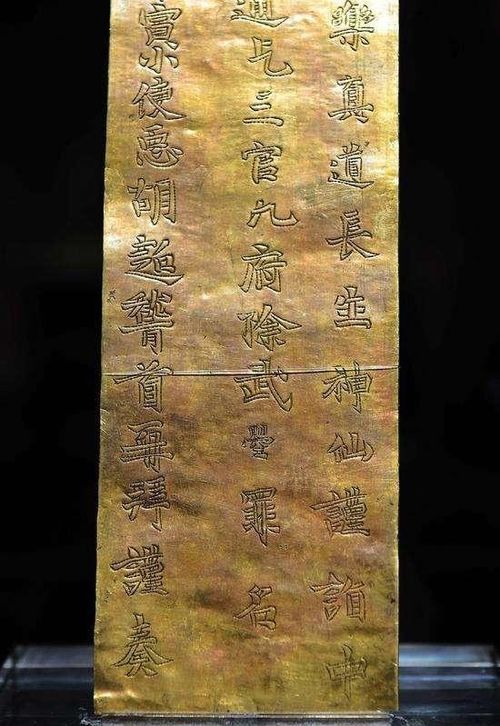 樂真道長生神仙謹詣中
通乞三官九府除武曌罪名
寅小使𢘑胡超稽首再拜謹奏